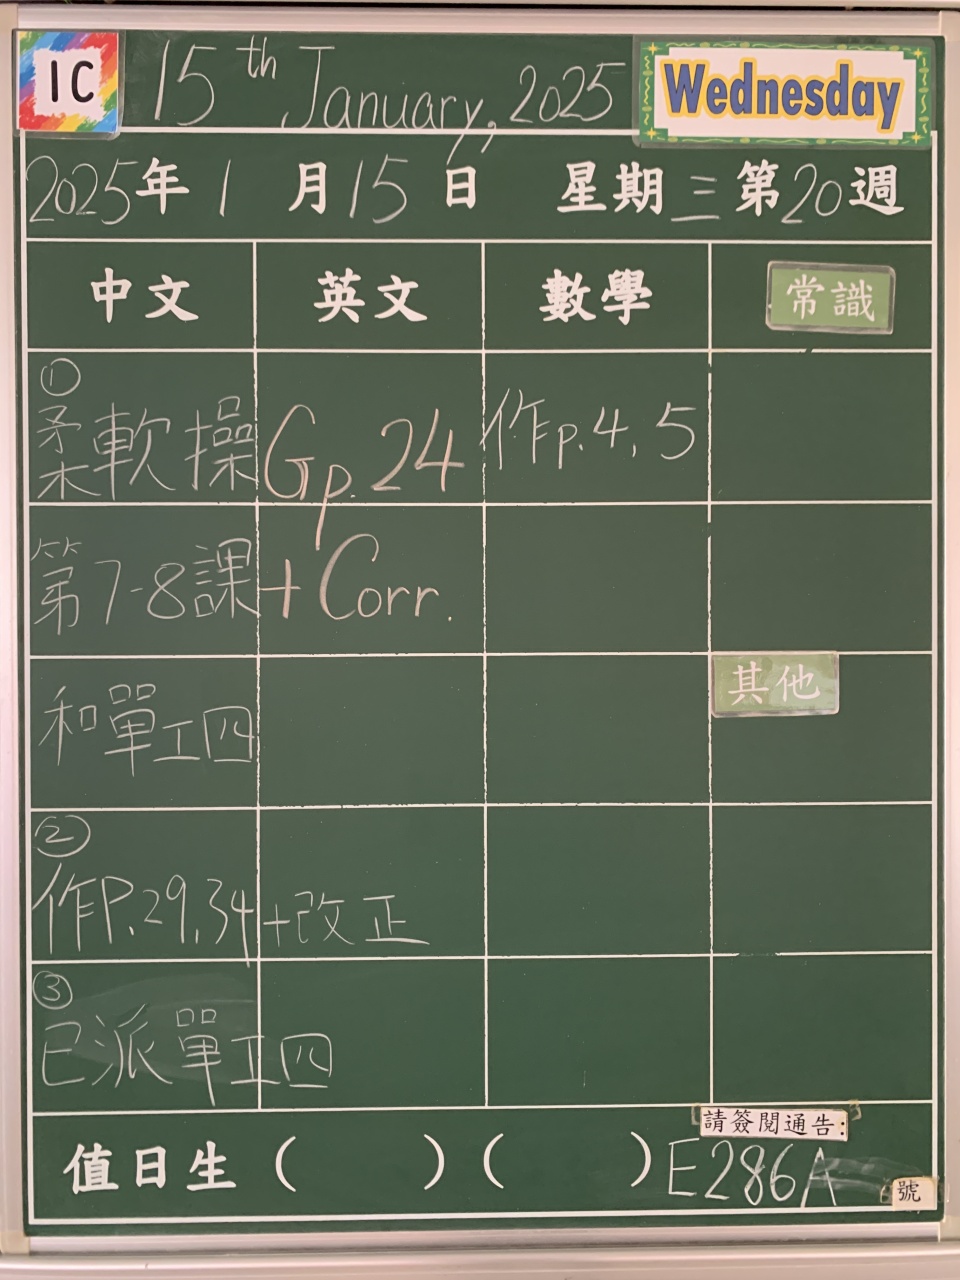 1C
15th January, 2025
Wednesday
2025年1月15日 星期三 第20週
中文 英文 數學 常識
①
柔軟操 Gp.24 作p.4,5
第7-8課 + Corr.
其他
和單工四
②
作P.29,34+改正
③
已派單工四
請簽閱通告:
值日生( )( ) E286A 號